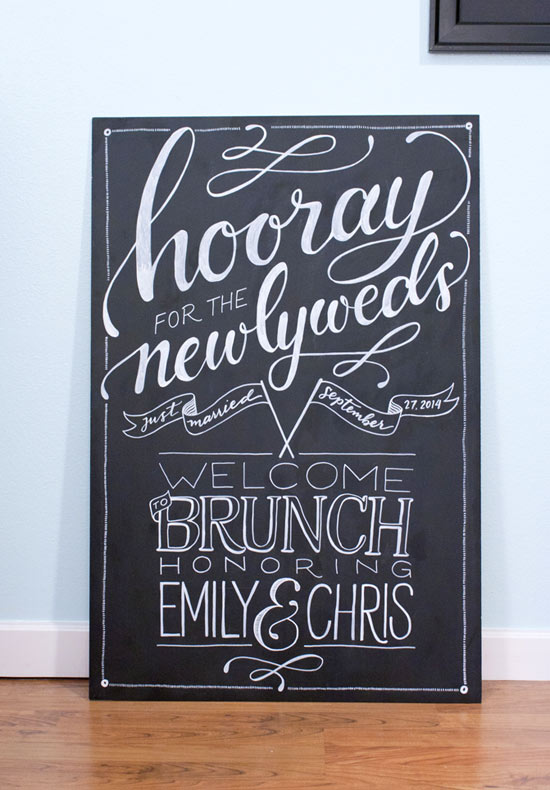 hooray
FOR THE
newlyweds
just married september 27, 2014
WELCOME
TO BRUNCH
HONORING
EMILY & CHRIS